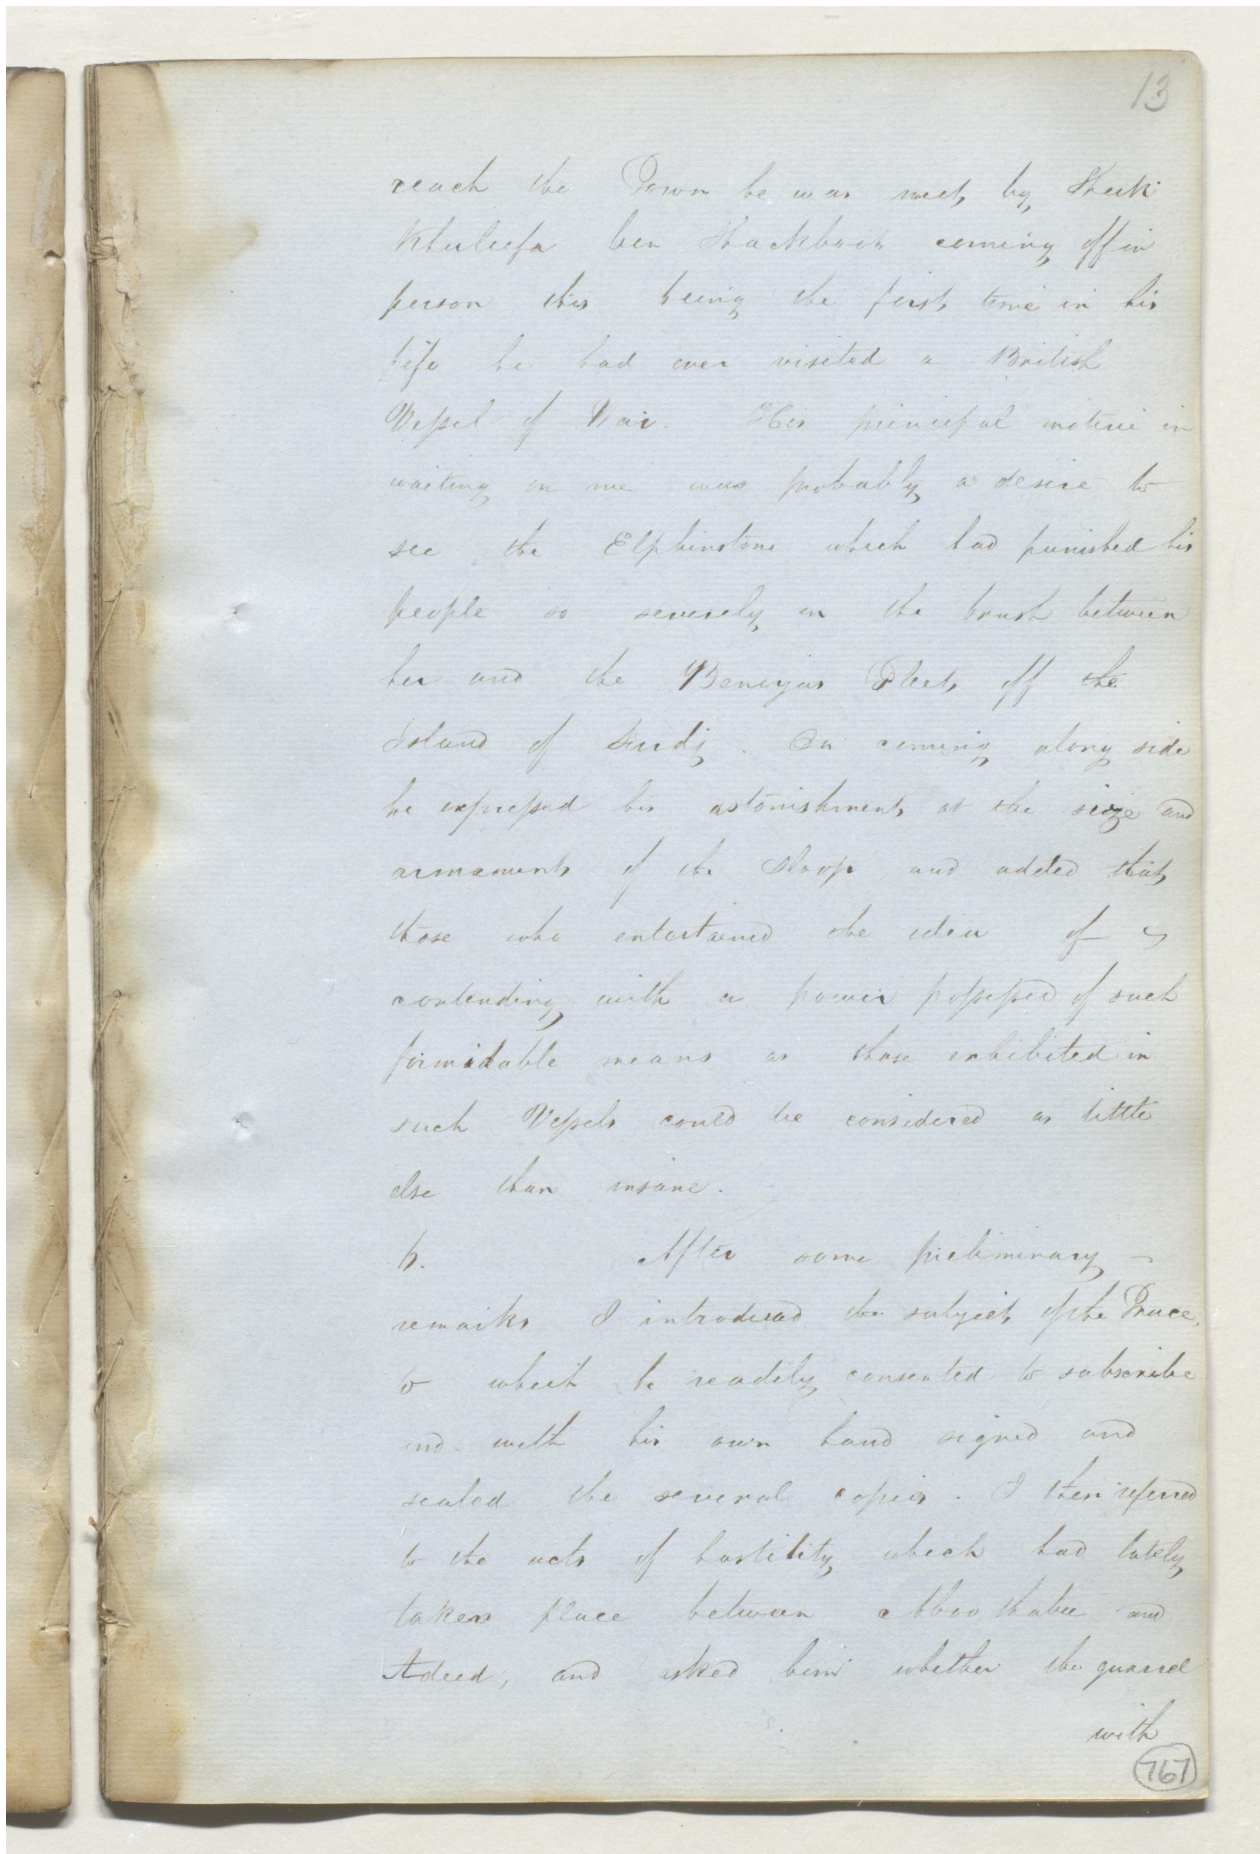 13
reach the Town he was met by Sheik
Khuleefa ben Shackboot coming off in
person this being the first time in his
life he had ever visited a British
Vessel of War. His principal motive in
waiting on me was probably a desire to
see the Elphinstone which had punished his
people so severely in the brush between
her and the Beniyas Fleet, off the
Island of Surdy. On coming along side
he expressed his astonishment at the size and
armament of the Sloop and added that
those who entertained the idea of
contending with a power possessed of such
formidable means as those exhibited in
such Vessels could be considered as little
else than insane.
6. After some preliminary
remarks I introduced the subject of the Truce,
to which he readily consented to subscribe
and with his own hand signed and
sealed the several copies. I then referred
to the acts of hostility which had lately
taken place between Aboothabee and
Adeed, and asked him whether the quarrel
with
767